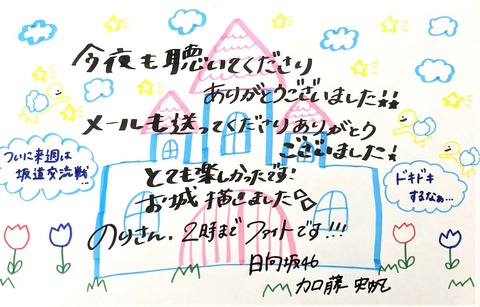 今夜も聴いてくださり
ありがとうございました!!
メールも送ってくださりありがとう
ございました!
ついに来週は
坂道交流戦…
とても楽しかったです!
お城描きました
ドキドキ
するなぁ…
のりさん、2時までファイトです!!!
日向坂46
加藤史帆